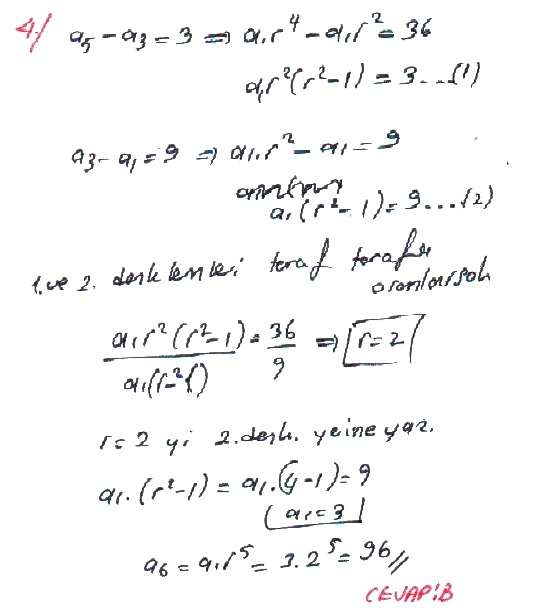 4/ a₅ - a₃ = 3 ⇒ a₁r⁴ - a₁r² = 36
a₁r²(r²-1) = 3...(1)
a₃ - a₁ = 9 ⇒ a₁.r² - a₁ = 9
a₁(r²-1) = 9...(2)
1.ve 2. denklemleri taraf tarafa
oranlarsak
a₁r²(r²-1) / a₁(r²-1) = 36/9 ⇒ r=2
r=2 yi 2.denk. yerine yaz.
a₁.(r²-1) = a₁.(4-1) = 9
a₁=3
a₆ = a₁r⁵ = 3.2⁵ = 96//
CEVAP:B